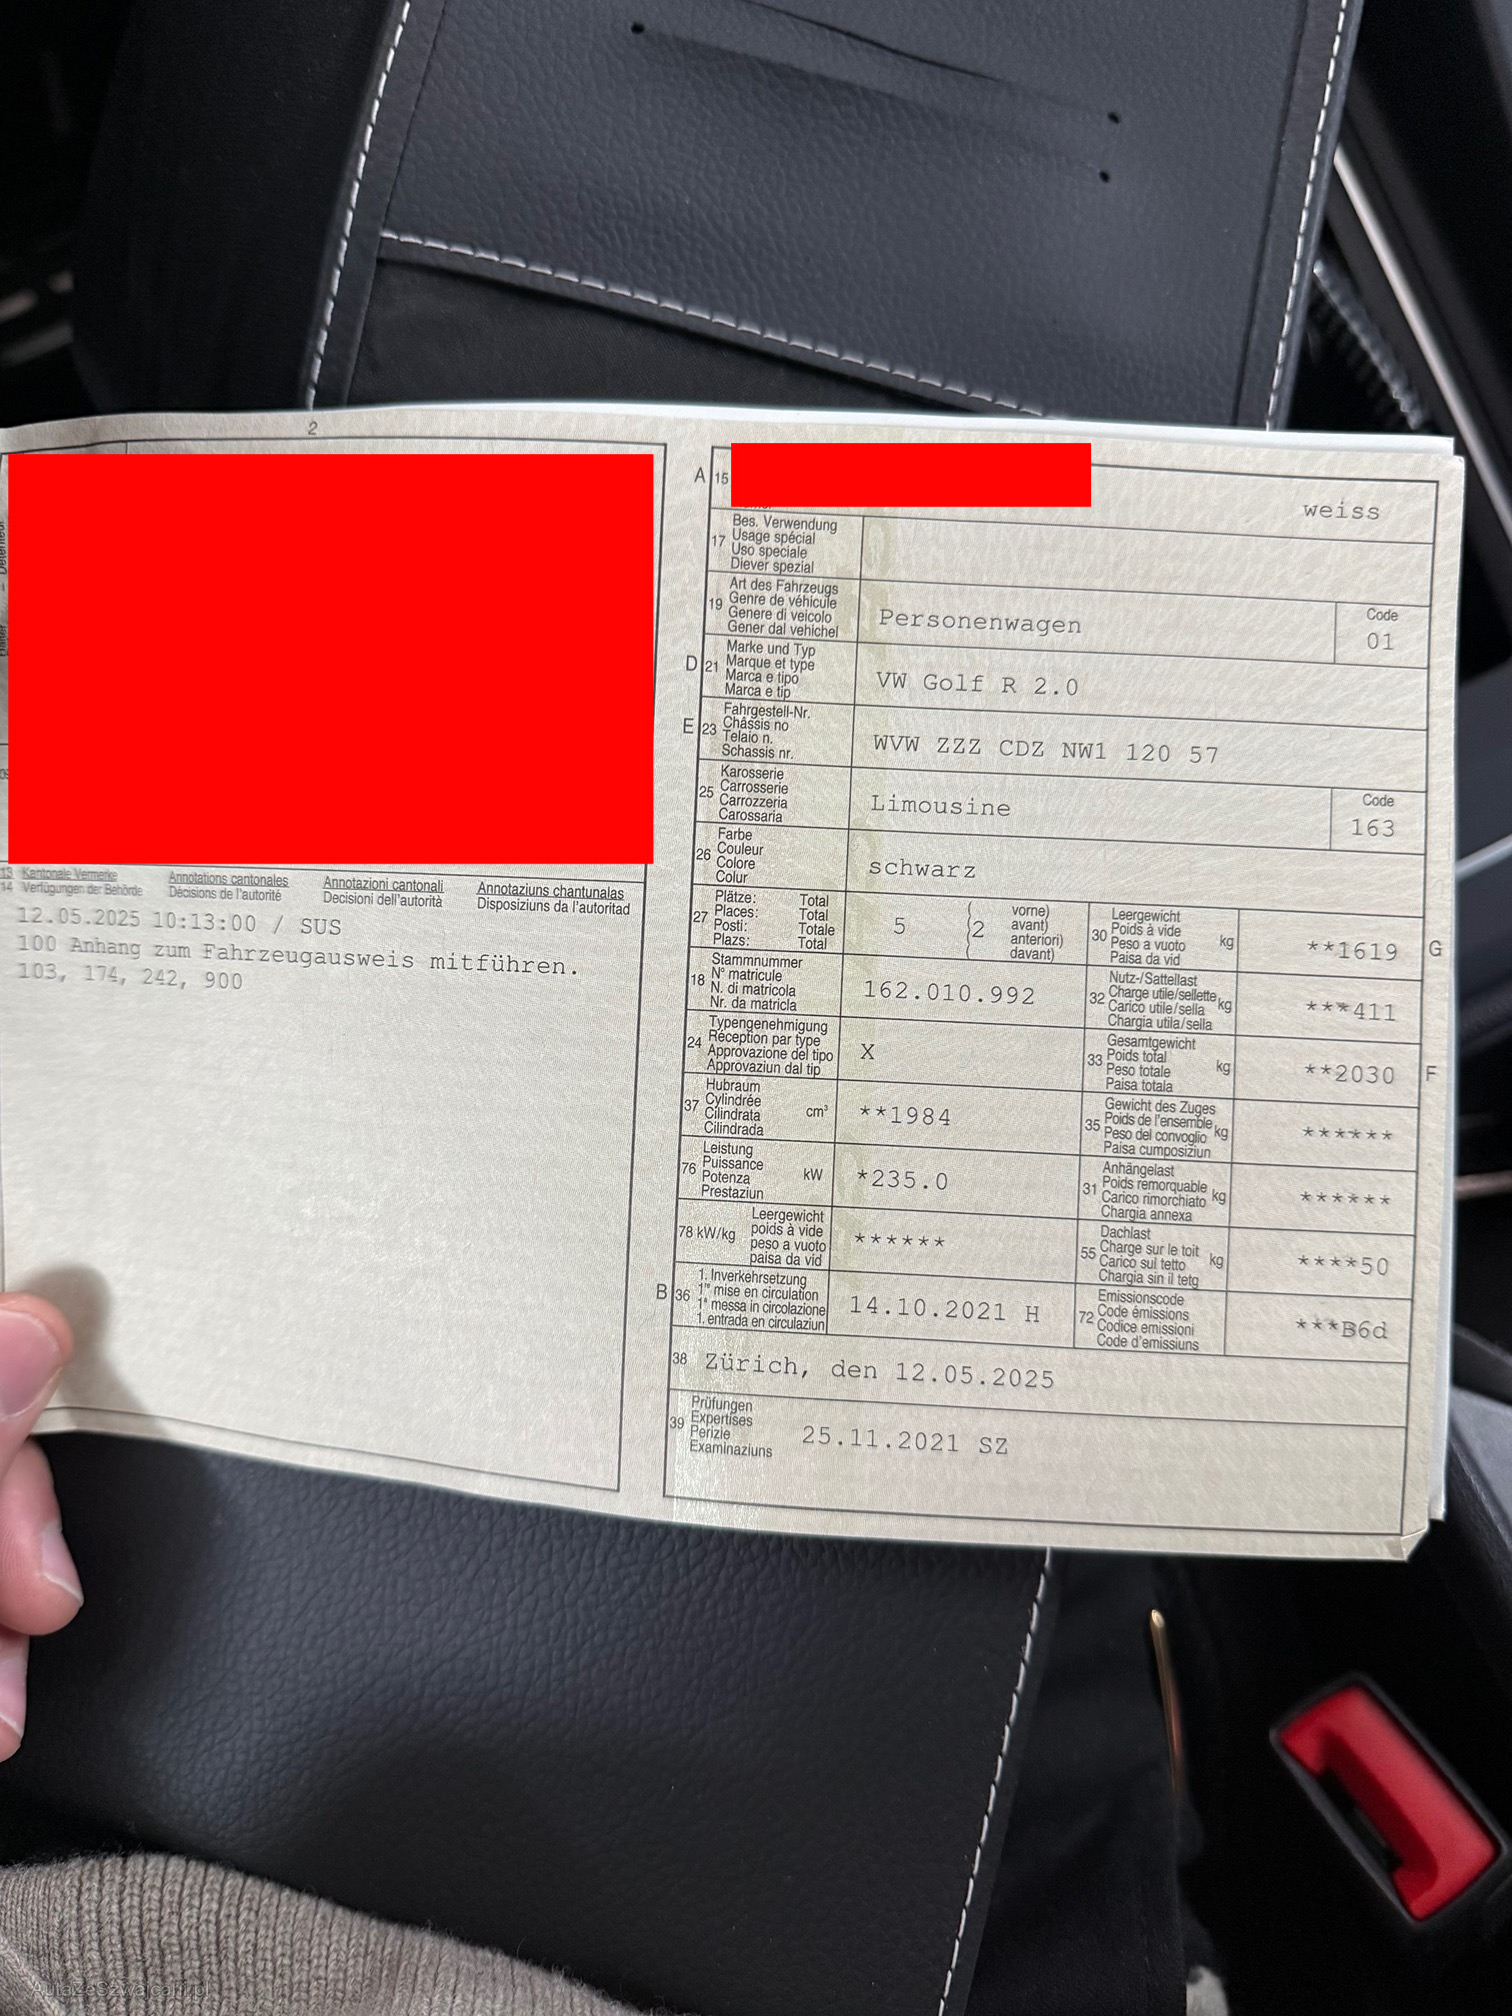 2
13 Kantonale Vermerke Annotations cantonales Annotazioni cantonali Annotaziuns chantunalas
14 Verfügungen der Behörde Décisions de l'autorité Decisioni dell'autorità Disposiziuns da l'autoritad
12.05.2025 10:13:00 / SUS
100 Anhang zum Fahrzeugausweis mitführen.
103, 174, 242, 900
A 15 weiss
17 Bes. Verwendung
Usage spécial
Uso speciale
Diever spezial
19 Art des Fahrzeugs
Genre de véhicule
Genere di veicolo
Gener dal vehichel
Personenwagen
Code
01
D 21 Marke und Typ
Marque et type
Marca e tipo
Marca e tip
VW Golf R 2.0
E 23 Fahrgestell-Nr.
Châssis no
Telaio n.
Schassis nr.
WVW ZZZ CDZ NW1 120 57
25 Karosserie
Carrosserie
Carrozzeria
Carossaria
Limousine
Code
163
26 Farbe
Couleur
Colore
Colur
schwarz
27 Plätze: Total
Places: Total
Posti: Totale
Plazs: Total
5 (2 vorne)
avant)
anteriori)
davant)
30 Leergewicht
Poids à vide
Peso a vuoto
Paisa da vid
kg **1619 G
18 Stammnummer
N° matricule
N. di matricola
Nr. da matricla
162.010.992
32 Nutz-/Sattellast
Charge utile/sellette
Carico utile/sella
Chargia utila/sella
kg ***411
24 Typengenehmigung
Réception par type
Approvazione del tipo
Approvaziun dal tip
X
33 Gesamtgewicht
Poids total
Peso totale
Paisa totala
kg **2030 F
37 Hubraum
Cylindrée
Cilindrata
Cilindrada
cm³ **1984
35 Gewicht des Zuges
Poids de l'ensemble
Peso del convoglio
Paisa cumposiziun
kg ******
76 Leistung
Puissance
Potenza
Prestaziun
kW *235.0
31 Anhängelast
Poids remorquable
Carico rimorchiato
Chargia annexa
kg ******
78 kW/kg Leergewicht
poids à vide
peso a vuoto
paisa da vid
******
55 Dachlast
Charge sur le toit
Carico sul tetto
Chargia sin il tetg
kg ****50
B 36 1. Inverkehrsetzung
1re mise en circulation
1a messa in circolazione
1. entrada en circulaziun
14.10.2021 H
72 Emissionscode
Code émissions
Codice emissioni
Code d'emissiuns
***B6d
38 Zürich, den 12.05.2025
39 Prüfungen
Expertises
Perizie
Examinaziuns
25.11.2021 SZ
AutaZeSzwajcarii.pl